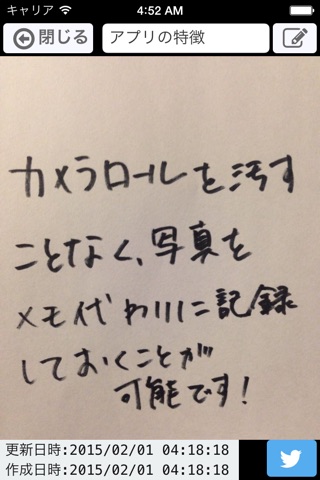 キャリア 4:52 AM
閉じる アプリの特徴
カメラロールを汚す
ことなく、写真を
メモ代わりに記録
しておくことが
可能です!
更新日時:2015/02/01 04:18:18
作成日時:2015/02/01 04:18:18